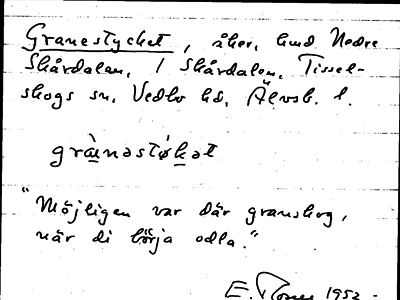 Granestycket, åker, hmd Nedre
Skårdalen, / Skårdalen, Tissel-
skogs sn, Vedbo hd, Älvsb. l.
grànəstøkət
"Möjligen var där granskog,
när di börja odla."
E. 1952.